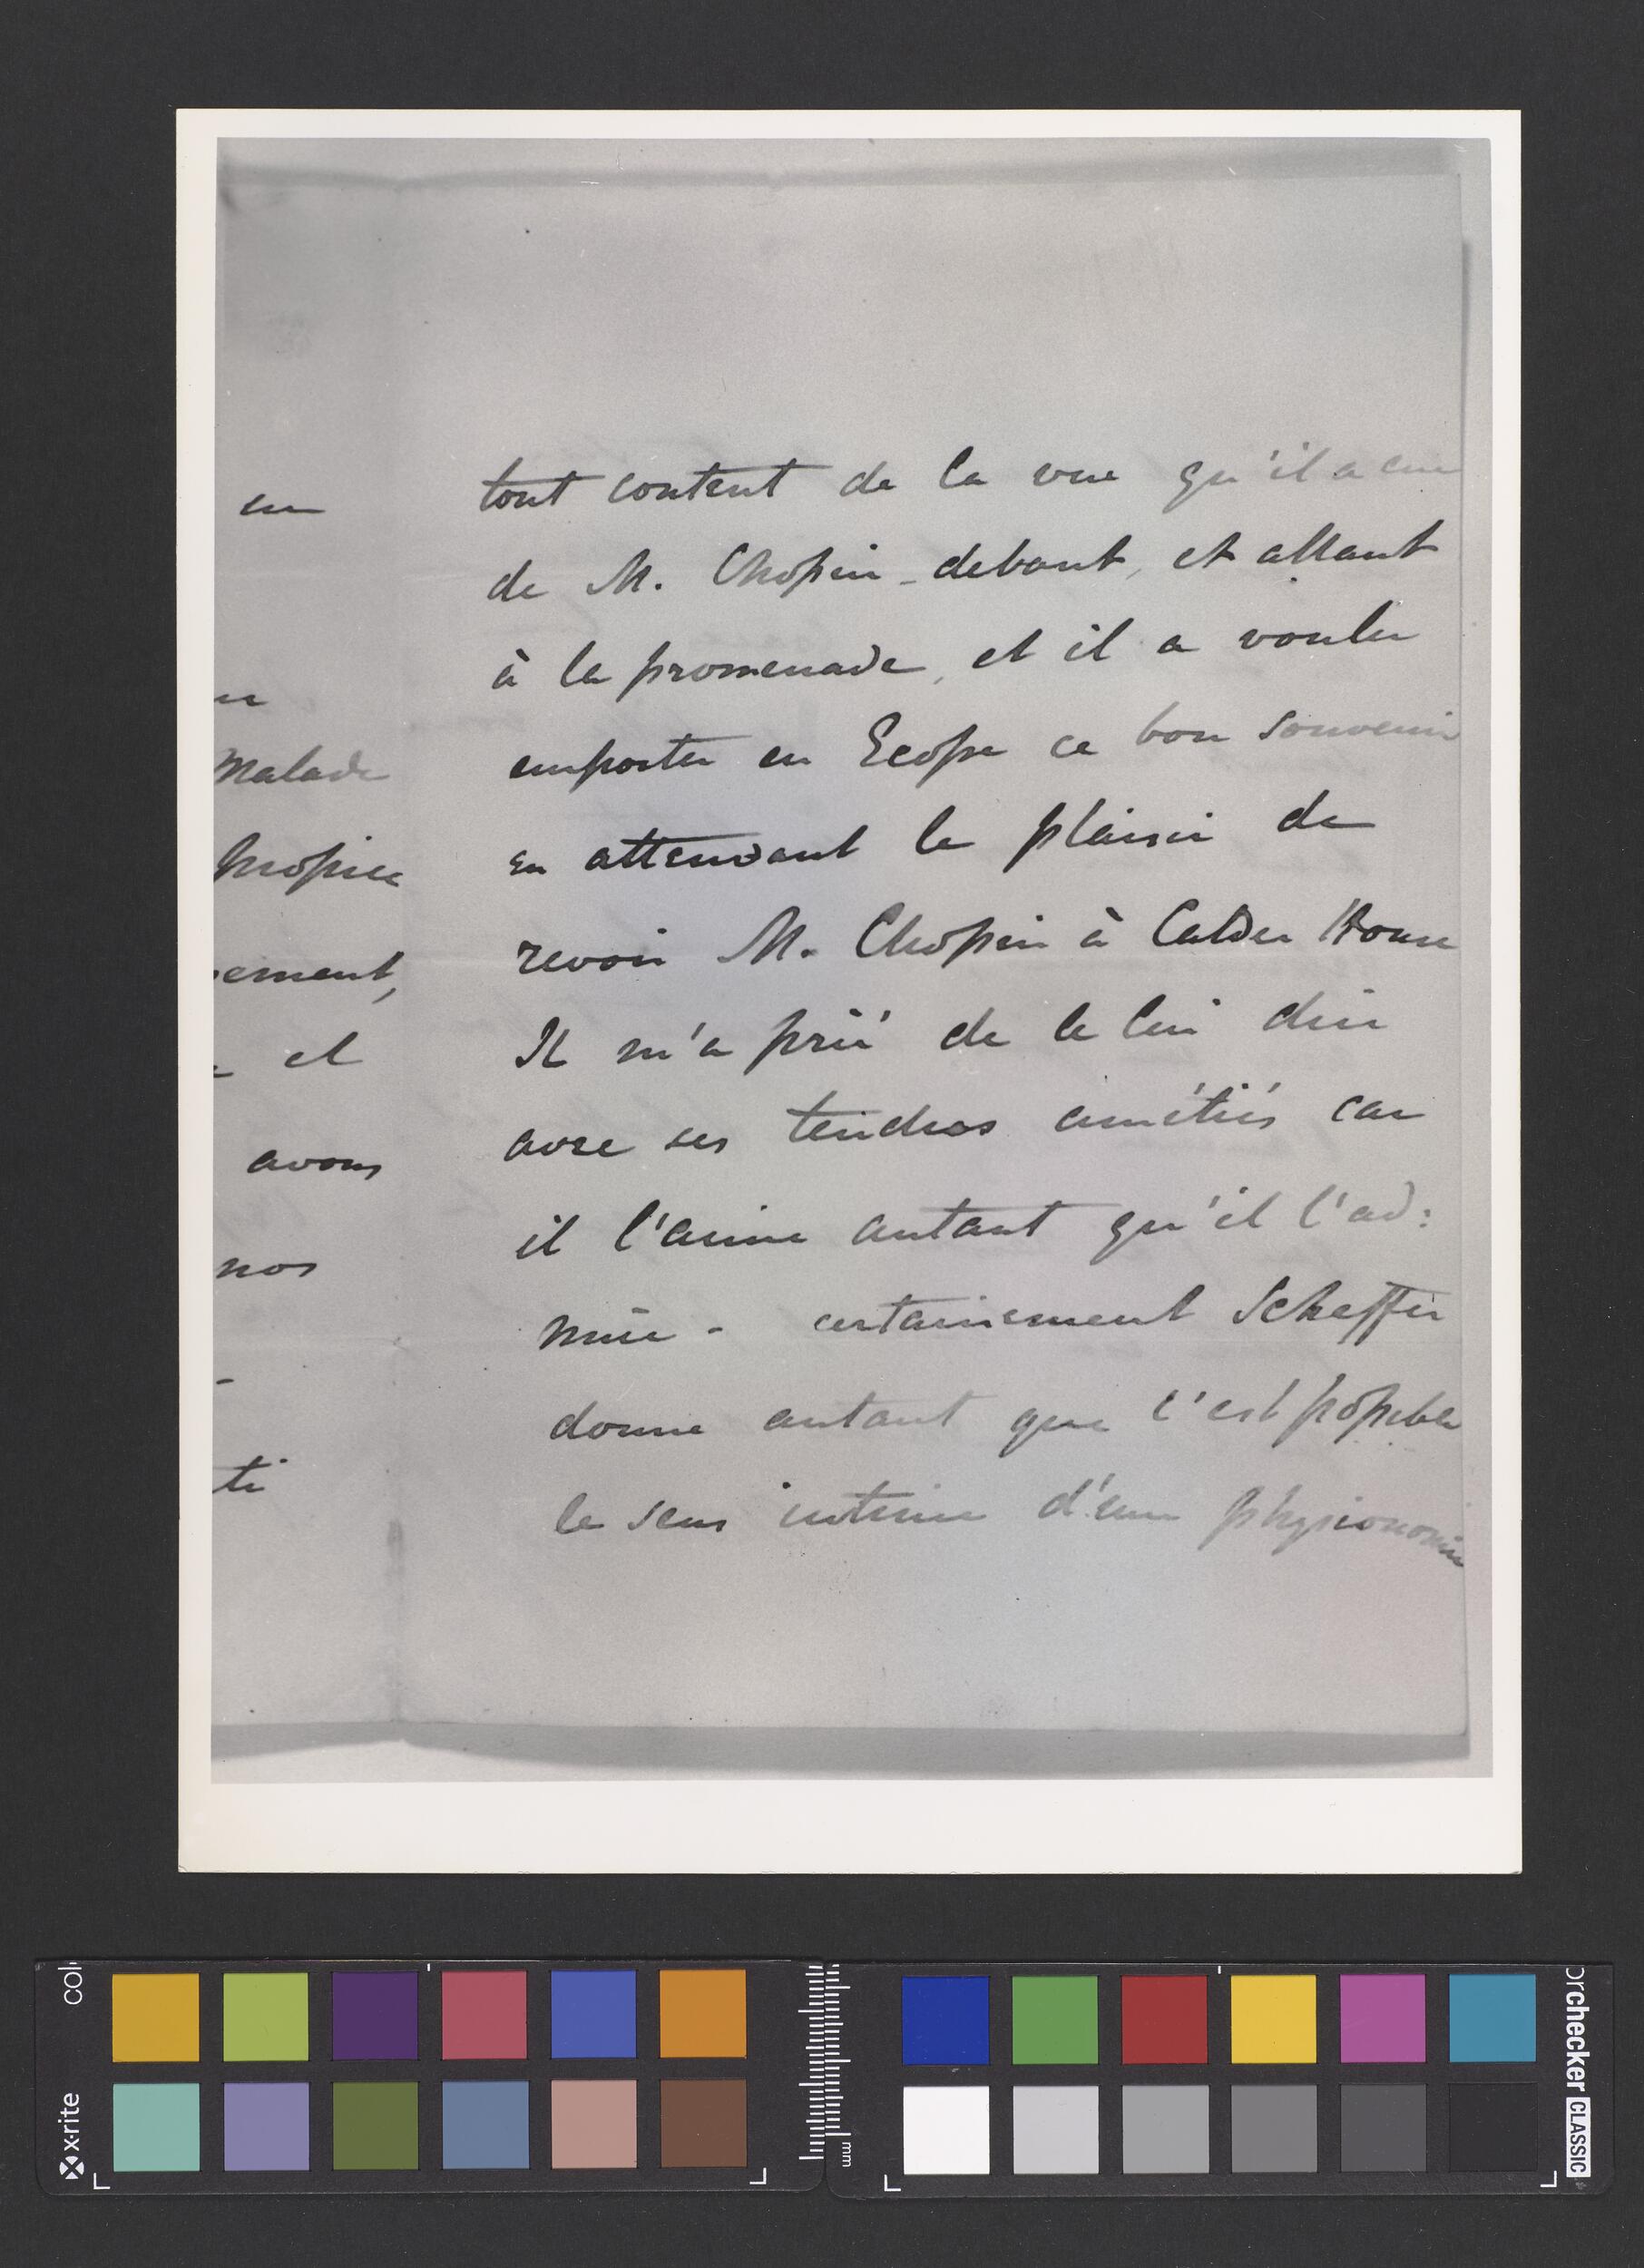 en
n
Malade
hropice
ement,
et
avons
nos
-
ti
tout content de la vue qu'il a eue
de M. Chopin - debout, et allant
à la promenade, et il a voulu
emporter en Ecosse ce bon souvenir
en attendant le plaisir de
revoir M. Chopin à Calder House
Il m'a prié de le lui dire
avec ses tendres amitiés car
il l'aime autant qu'il l'ad:
mire - certainement Scheffer
donne autant que c'est possible
le sens intime d'une physionomie
x-rite
col
mm
orchecker CLASSIC